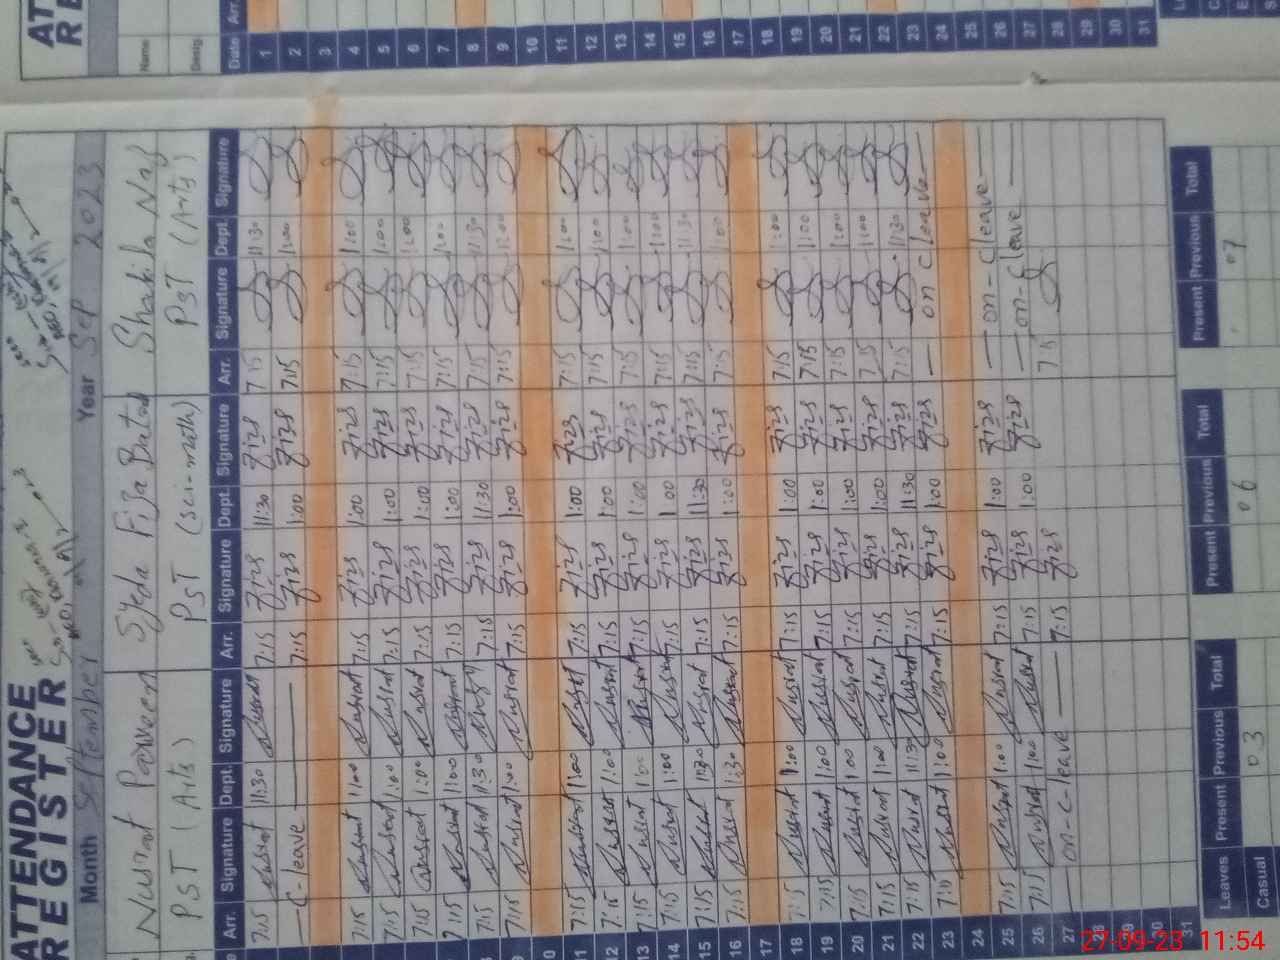 ATTENDANCE
REGISTER
Month September Year Sep 2023
Nusrat Parveen Syeda Fiza Batool Shakila Naz
PST (Arts) PST (sci-math) PST (Arts)
Arr. Signature Dept. Signature Arr. Signature Dept. Signature Arr. Signature Dept. Signature
7:15 Nusrat 11:30 Nusrat 7:15 Fiza 11:30 Fiza 7:15 11:30
C-leave 7:15 Fiza 1:00 Fiza 7:15 1:00
7:15 Nusrat 1:00 Nusrat 7:15 Fiza 1:00 Fiza 7:15 1:00
7:15 Nusrat 1:00 Nusrat 7:15 Fiza 1:00 Fiza 7:15 1:00
7:15 Nusrat 1:00 Nusrat 7:15 Fiza 1:00 Fiza 7:15 1:00
7:15 Nusrat 1:00 Nusrat 7:15 Fiza 1:00 Fiza 7:15 1:00
7:15 Nusrat 11:30 Nusrat 7:15 Fiza 11:30 Fiza 7:15 11:30
7:15 Nusrat 1:00 Nusrat 7:15 Fiza 1:00 Fiza 7:15 1:00
11 7:15 Nusrat 1:00 Nusrat 7:15 Fiza 1:00 Fiza 7:15 1:00
12 7:15 Nusrat 1:00 Nusrat 7:15 Fiza 1:00 Fiza 7:15 1:00
13 7:15 Nusrat 1:00 Nusrat 7:15 Fiza 1:00 Fiza 7:15 1:00
14 7:15 Nusrat 1:00 Nusrat 7:15 Fiza 1:00 Fiza 7:15 1:00
15 7:15 Nusrat 11:30 Nusrat 7:15 Fiza 11:30 Fiza 7:15 11:30
16 7:15 Nusrat 1:30 Nusrat 7:15 Fiza 1:00 Fiza 7:15 1:00
17
18 7:15 Nusrat 1:00 Nusrat 7:15 Fiza 1:00 Fiza 7:15 1:00
19 7:15 Nusrat 1:00 Nusrat 7:15 Fiza 1:00 Fiza 7:15 1:00
20 7:15 Nusrat 1:00 Nusrat 7:15 Fiza 1:00 Fiza 7:15 1:00
21 7:15 Nusrat 1:00 Nusrat 7:15 Fiza 1:00 Fiza 7:15 1:00
22 7:15 Nusrat 11:30 Nusrat 7:15 Fiza 11:30 Fiza 7:15 11:30
23 7:15 Nusrat 1:00 Nusrat 7:15 Fiza 1:00 Fiza on C leave
24
25 7:15 Nusrat 1:00 Nusrat 7:15 Fiza 1:00 Fiza on-C leave
26 7:15 Nusrat 1:00 Nusrat 7:15 Fiza 1:00 Fiza on-C leave
27 on-C-leave 7:15 Fiza 7:15
28
29
30
31
Leaves Present Previous Total Present Previous Total Present Previous Total
Casual 03 06 07
AT
RE
Name
Desig.
Date Arr.
1
2
3
4
5
6
7
8
9
10
11
12
13
14
15
16
17
18
19
20
21
22
23
24
25
26
27
28
29
30
31
27-09-23 11:54